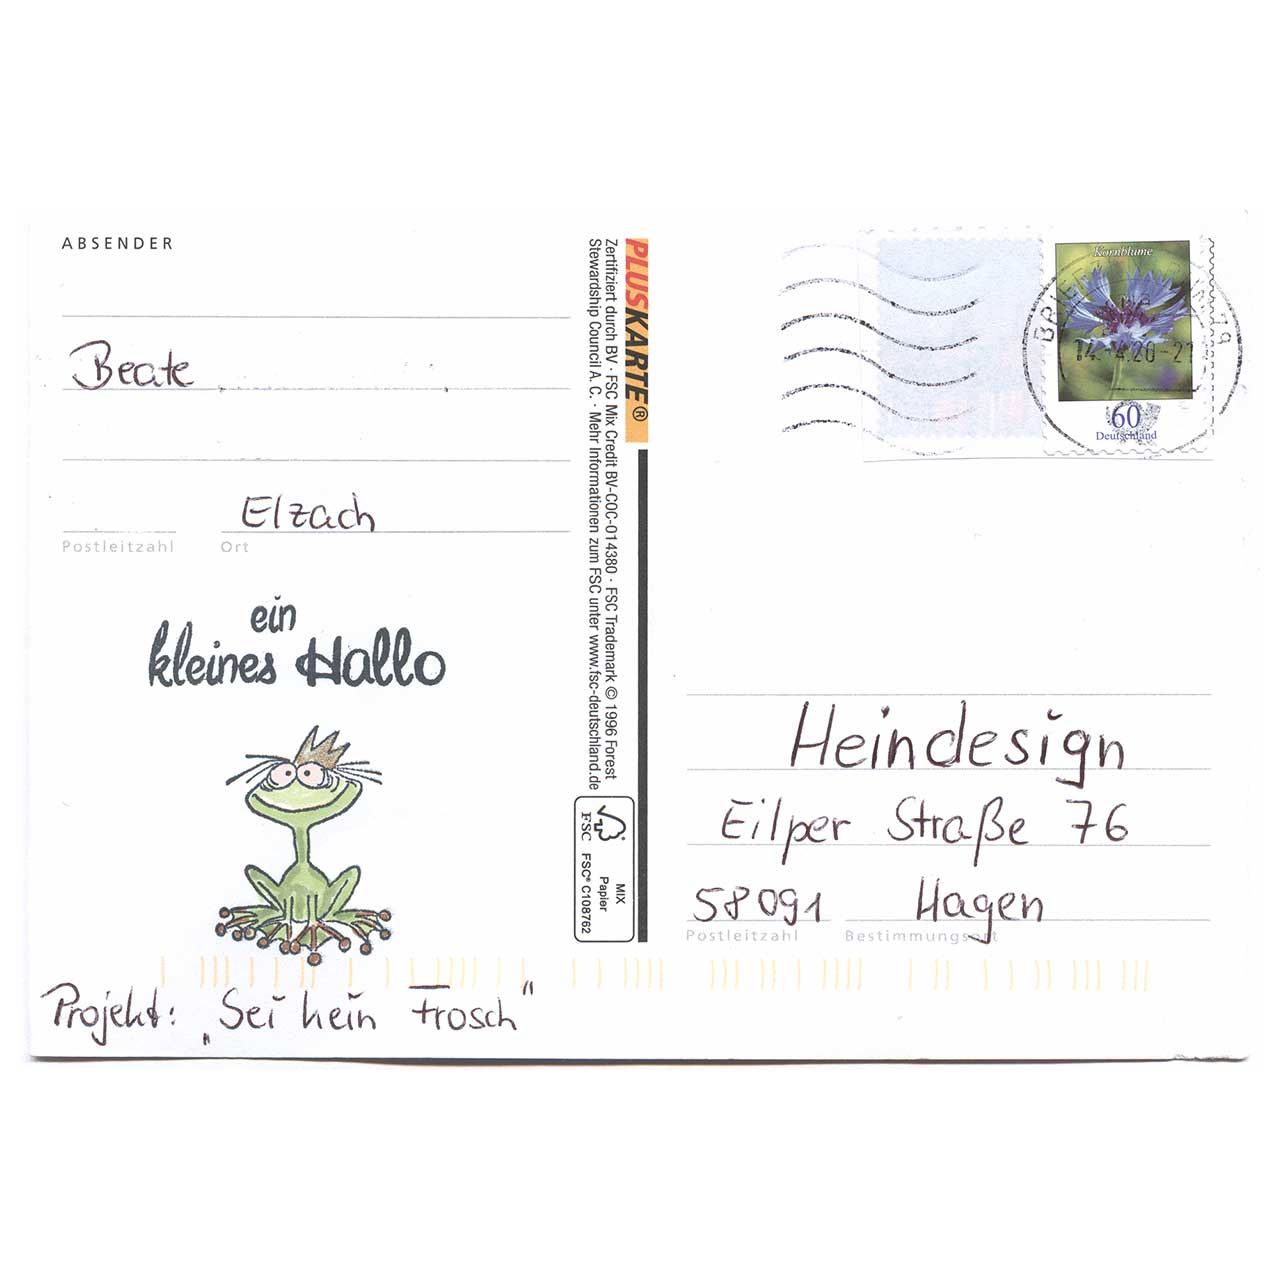 ABSENDER
Beate
Elzach
Postleitzahl Ort
ein
kleines Hallo
Projekt: „Sei kein Frosch"
PLUSKARTE®
Zertifiziert durch BV · FSC Mix Credit BV-COC-014380 · FSC Trademark © 1996 Forest
Stewardship Council A. C. · Mehr Informationen zum FSC unter www.fsc-deutschland.de
FSC
MIX
Papier
FSC® C108762
Kornblume
14.-4.20-21
60
Deutschland
Heindesign
Eilper Straße 76
58091 Hagen
Postleitzahl Bestimmungsort